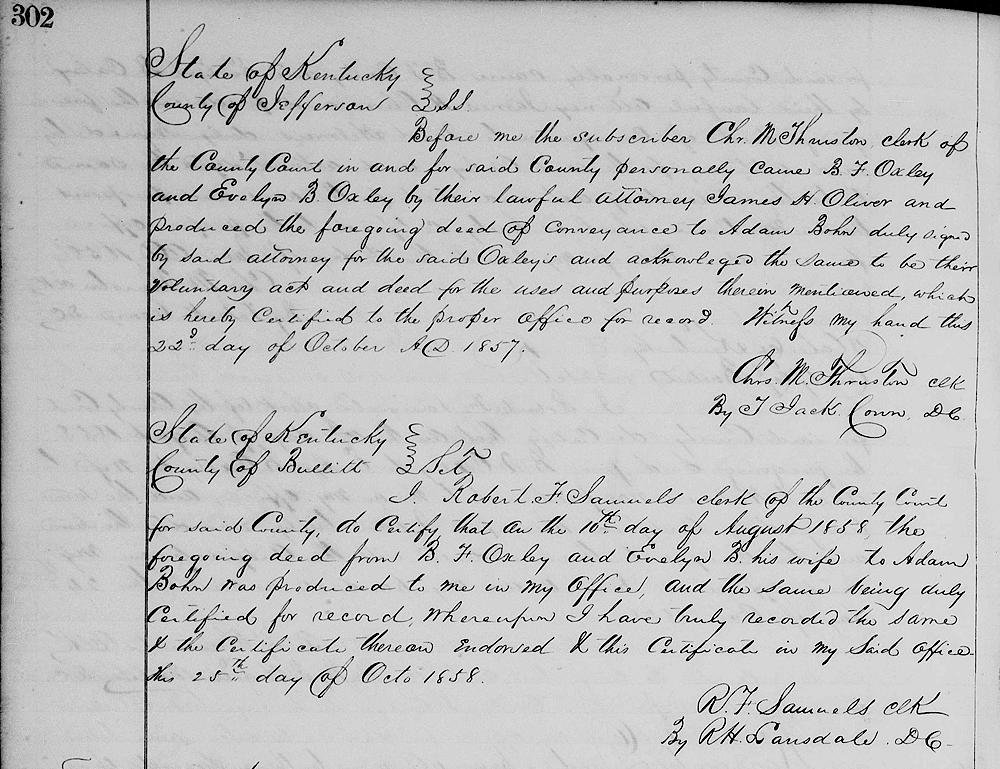 302
State of Kentucky
County of Jefferson } SS
Before me the subscriber Chr. M Thruston clerk of
the County Court in and for said County personally came B. F. Oxley
and Evelyn B. Oxley by their lawful attorney James H. Oliver and
produced the foregoing deed of conveyance to Adam Bohn duly signed
by said attorney for the said Oxley's and acknowleged the same to be their
voluntary act and deed for the uses and purposes therein mentioned, which
is hereby Certified to the proper office for record. Witness my hand this
22d day of October AD. 1857.
Chrs. M. Thruston clk
By T Jack Conn, DC
State of Kentucky
County of Bullitt } Sct
I. Robert. F. Samuels clerk of the County Court
for said County, do Certify, that on the 10th day of August 1858, the
foregoing deed from B. F. Oxley and Evelyn B. his wife to Adam
Bohn was produced to me in my Office, and the same being duly
Certified for record, Whereupon I have truly recorded the same
& the Certificate thereon Endorsed & this Certificate in my said office
this 25th day of Octo 1858.
R. F. Samuels clk
By R.H. Lansdale. DC